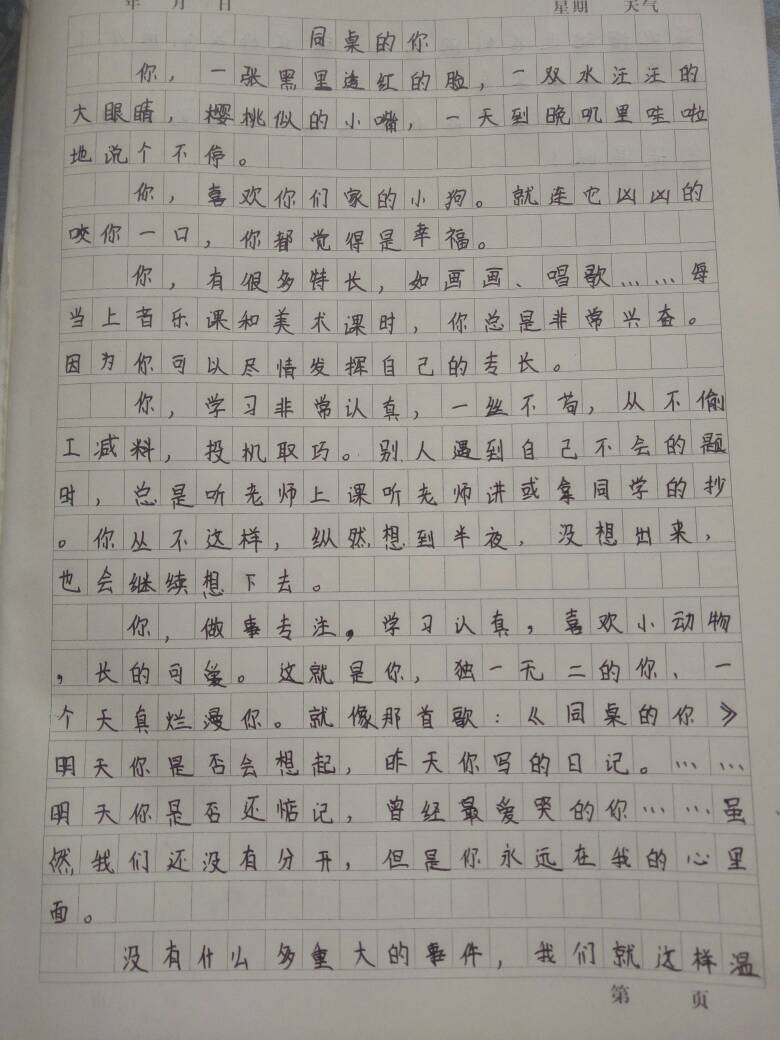 年 月 日 星期 天气
同桌的你
你，一张黑里透红的脸，一双水汪汪的
大眼睛，樱桃似的小嘴，一天到晚叽里哇啦
地说个不停。
你，喜欢你们家的小狗。就连它凶凶的
咬你一口，你都觉得是幸福。
你，有很多特长，如画画、唱歌……每
当上音乐课和美术课时，你总是非常兴奋。
因为你可以尽情发挥自己的专长。
你，学习非常认真，一丝不苟，从不偷
工减料，投机取巧。别人遇到自己不会的题
时，总是听老师上课听老师讲或拿同学的抄
。你丛不这样，纵然想到半夜，没想出来，
也会继续想下去。
你，做事专注，学习认真，喜欢小动物
，长的可爱。这就是你，独一无二的你、一
个天真烂漫你。就像那首歌：《同桌的你》
明天你是否会想起，昨天你写的日记。……
明天你是否还惦记，曾经最爱哭的你……虽
然我们还没有分开，但是你永远在我的心里
面。
没有什么多重大的事件，我们就这样温
第 页